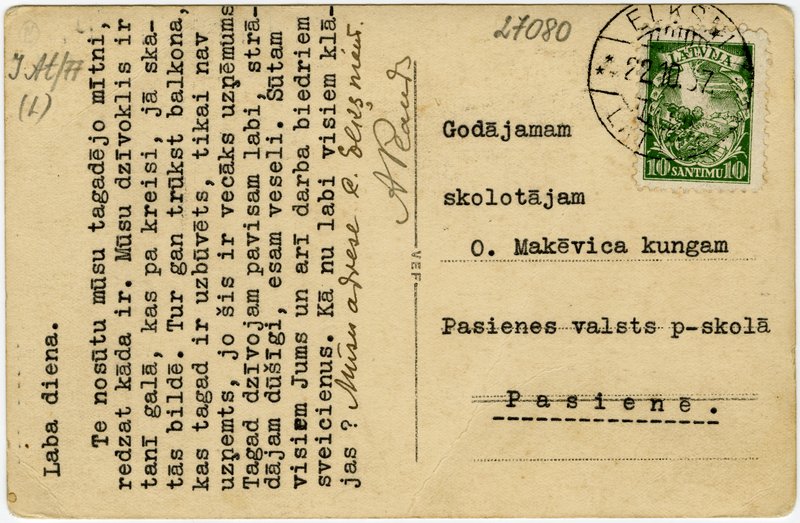 Laba diena.
Te nosūtu mūsu tagadējo mītni,
redzat kāda ir. Mūsu dzīvoklis ir
tanī galā, kas pa kreisi, jā ska-
tās bildē. Tur gan trūkst balkona,
kas tagad ir uzbūvēts, tikai nav
uzņemts, jo šis ir vecāks uzņēmums
Tagad dzīvojam pavisam labi, strā-
dājam dūšīgi, esam veseli. Sūtam
visiem Jums un arī darba biedriem
sveicienus. Kā nu labi visiem klā-
jas? Mūsu adrese c.
VEF
27080
(L)
22.
37
LATVIJA
10 SANTIMU 10
Godājamam
skolotājam
O. Makēvica kungam
Pasienes valsts p-skolā
Pasienē.